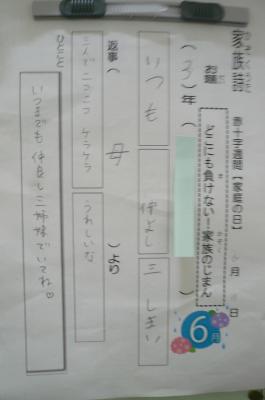 家族詩 【家庭の日】 月 日
お題 どこにも負けない!家族のじまん
6月
(3)年( )
いつも 仲よし 三しまい
返事( 母 )より
三人でニコニコ ケラケラ うれしいな
ひとこと
いつまでも仲良し三姉妹でいてね♡